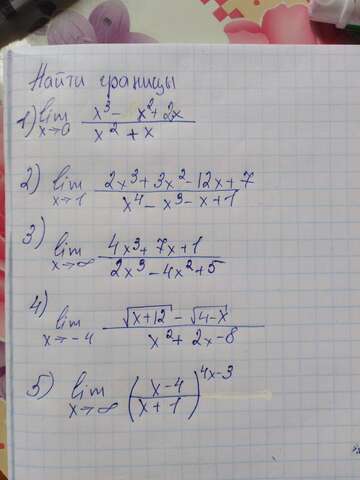 Найти границы
1) lim x→0 (x³ - x² + 2x)/(x² + x)
2) lim x→1 (2x³ + 3x² - 12x + 7)/(x⁴ - x³ - x + 1)
3) lim x→∞ (4x³ + 7x + 1)/(2x³ - 4x² + 5)
4) lim x→-4 (√(x+12) - √(4-x))/(x² + 2x - 8)
5) lim x→∞ ((x-4)/(x+1))^(4x-3)